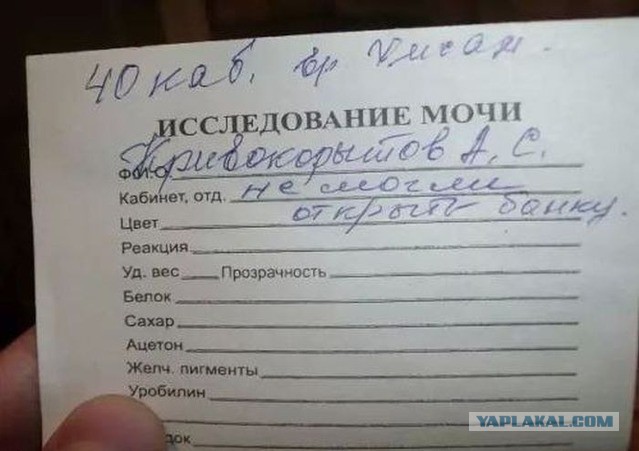 40 каб. вр
ИССЛЕДОВАНИЕ МОЧИ
Ф.И.О. Кривокорытов А. С.
Кабинет, отд. не могли
Цвет открыть банку.
Реакция
Уд. вес Прозрачность
Белок
Сахар
Ацетон
Желч. пигменты
Уробилин
док
YAPLAKAL.COM